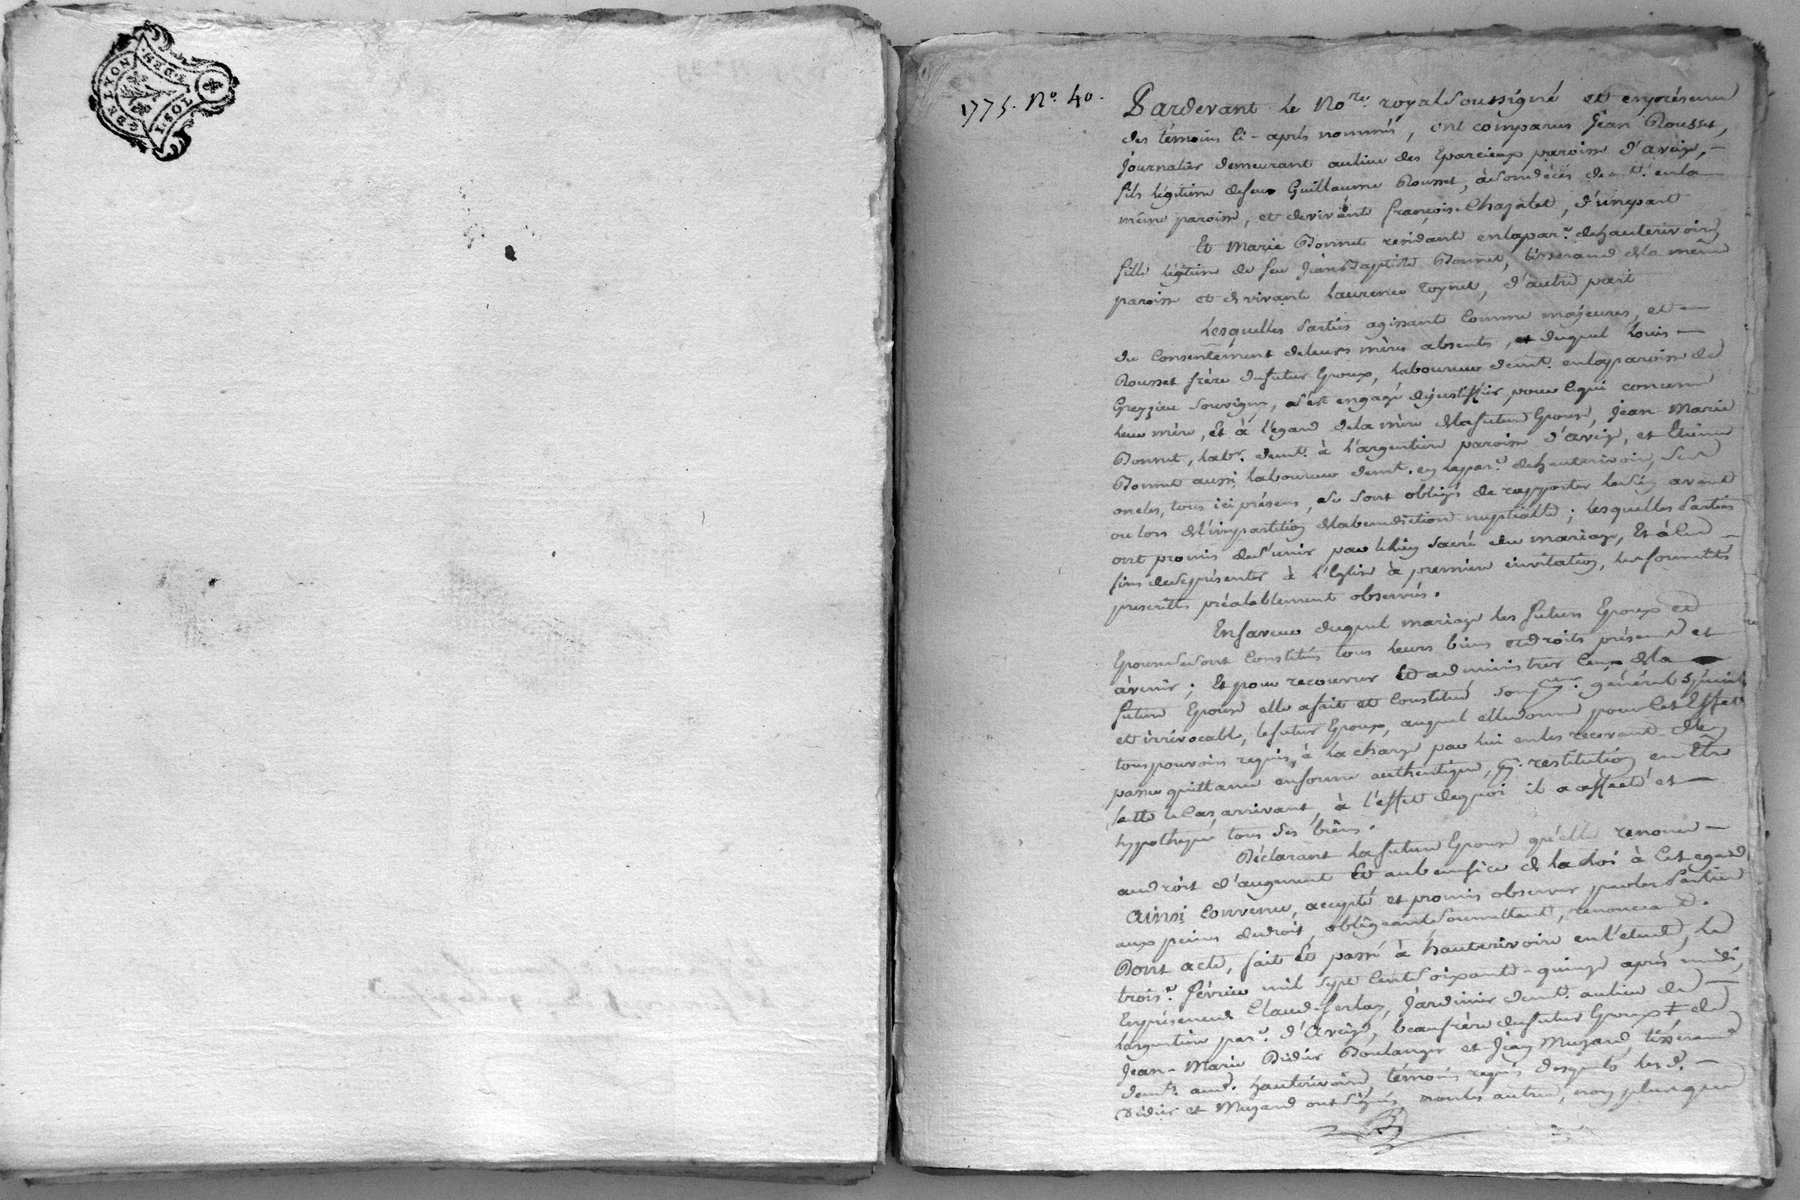 GDE LYON
1 SOL
1775. No. 40.
Pardevant le No.re royal soussigné et en présence
des témoins ci-après nommés, ont comparus Jean Rousset,
Journalier demeurant au lieu des Eparcieux paroisse d'aveize,
fils légitime de feu Guillaume Rousset, à son décès dem.t en la
même paroisse, et de vivante françoise Chazalet, d'une part
Et Marie Bonnet residante en la par.e de hauterivoire
fille légitime de feu Jean Baptiste Bonnet, tisserand de la même
paroisse et de vivante Laurence royret, d'autre part
Lesquelles parties agissant comme majeures, et
du consentement de leurs mères absentes, et duquel Louis
Rousset frère du futur Epoux, laboureur dem.t en la paroisse de
Grezzieu Souvigny, s'est engagé de justifier pour ce qui concerne
leur mère, et à l'égard de la mère de la future Epouse, Jean Marie
Bonnet, lab.r dem.t à l'argentière paroisse d'aveize, et Etienne
Bonnet aussi laboureur dem.t en la par.e de hauterivoire, ses
oncles, tous ici présens, se sont obligés de rapporter le avant
ou lors de l'impartition de la benediction nuptialle; lesquelles parties
ont promis de s'unir par le lien sacré du mariage, Et à led.
fins de se présenter à l'Eglise à premiere invitation, les formalités
prescrittes préalablement observées.
En faveur duquel mariage les futurs Epoux et
Epouse se sont constitués tous leurs biens et droits présents et
à venir; Et pour recouvrer Et administrer ceux de la
future Epouse elle a fait et constitué son général spécial
et irrévocable, le futur Epoux, auquel elle donne pour cet Effet
tous pouvoirs requis, à la charge par lui en les recevant d'en
passer quittance en forme authentique, p.r restitution en Etre
faitte le cas arrivant, à l'effet de quoi il a affecté et
hypothequé tous ses biens.
Déclarant la future Epouse qu'elle renonce
au droit d'augment Et au benefice de la Loi à cet egard
Ainsi convenu, accepté et promis observer par les parties
aux peines de droit, obligeant soumettant, renonceant.
Dont acte, fait Et passé à hauterivoire en l'etude, le
trois.e février mil sept cent soixante-quinze après midi,
En présence de Claude ferlay, Jardinier dem.t au lieu de
Largentière par.e d'Aveize, beaufrère du futur Epoux & de
Jean-Marie Didier Boulanger et Jean Muzard, tisserand
dem.ts aud. hauterivoire, témoins requis desquels lesd.
Didier et Muzard ont signés non les autres, non plus que